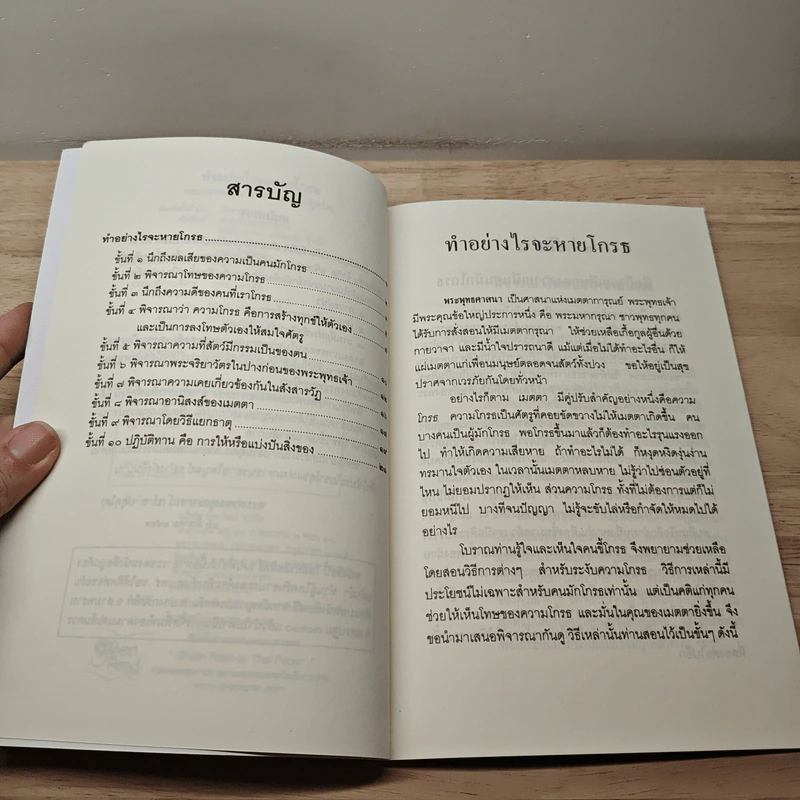 สารบัญ
ทำอย่างไรจะหายโกรธ
ขั้นที่ ๑ นึกถึงผลเสียของความเป็นคนมักโกรธ
ขั้นที่ ๒ พิจารณาโทษของความโกรธ
ขั้นที่ ๓ นึกถึงความดีของคนที่เราโกรธ
ขั้นที่ ๔ พิจารณาว่า ความโกรธ คือการสร้างทุกข์ให้ตัวเอง
และเป็นการลงโทษตัวเองให้สมใจศัตรู
ขั้นที่ ๕ พิจารณาความที่สัตว์มีกรรมเป็นของตน
ขั้นที่ ๖ พิจารณาพระจริยาวัตรในปางก่อนของพระพุทธเจ้า
ขั้นที่ ๗ พิจารณาความเคยเกี่ยวข้องกันในสังสารวัฏ
ขั้นที่ ๘ พิจารณาอานิสงส์ของเมตตา
ขั้นที่ ๙ พิจารณาโดยวิธีแยกธาตุ
ขั้นที่ ๑๐ ปฏิบัติทาน คือ การให้หรือแบ่งปันสิ่งของ
ทำอย่างไรจะหายโกรธ
พระพุทธศาสนา เป็นศาสนาแห่งเมตตาการุณย์ พระพุทธเจ้า
มีพระคุณข้อใหญ่ประการหนึ่ง คือ พระมหากรุณา ชาวพุทธทุกคน
ได้รับการสั่งสอนให้มีเมตตากรุณา ให้ช่วยเหลือเกื้อกูลผู้อื่นด้วย
กายวาจา และมีน้ำใจปรารถนาดี แม้แต่เมื่อไม่ได้ทำอะไรอื่น ก็ให้
แผ่เมตตาแก่เพื่อนมนุษย์ตลอดจนสัตว์ทั้งปวง ขอให้อยู่เป็นสุข
ปราศจากเวรภัยกันโดยทั่วหน้า
อย่างไรก็ตาม เมตตา มีคู่ปรับสำคัญอย่างหนึ่งคือความ
โกรธ ความโกรธเป็นศัตรูที่คอยขัดขวางไม่ให้เมตตาเกิดขึ้น คน
บางคนเป็นผู้มักโกรธ พอโกรธขึ้นมาแล้วก็ต้องทำอะไรรุนแรงออก
ไป ทำให้เกิดความเสียหาย ถ้าทำอะไรไม่ได้ ก็หงุดหงิดงุ่นง่าน
ทรมานใจตัวเอง ในเวลานั้นเมตตาหลบหาย ไม่รู้ว่าไปซ่อนตัวอยู่ที่
ไหน ไม่ยอมปรากฏให้เห็น ส่วนความโกรธ ทั้งที่ไม่ต้องการแต่ก็ไม่
ยอมหนีไป บางทีจนปัญญา ไม่รู้จะขับไล่หรือกำจัดให้หมดไปได้
อย่างไร
โบราณท่านรู้ใจและเห็นใจคนขี้โกรธ จึงพยายามช่วยเหลือ
โดยสอนวิธีการต่างๆ สำหรับระงับความโกรธ วิธีการเหล่านี้มี
ประโยชน์ไม่เฉพาะสำหรับคนมักโกรธเท่านั้น แต่เป็นคติแก่ทุกคน
ช่วยให้เห็นโทษของความโกรธ และมั่นในคุณของเมตตายิ่งขึ้น จึง
ขอนำมาเสนอพิจารณากันดู วิธีเหล่านั้นท่านสอนไว้เป็นขั้นๆ ดังนี้